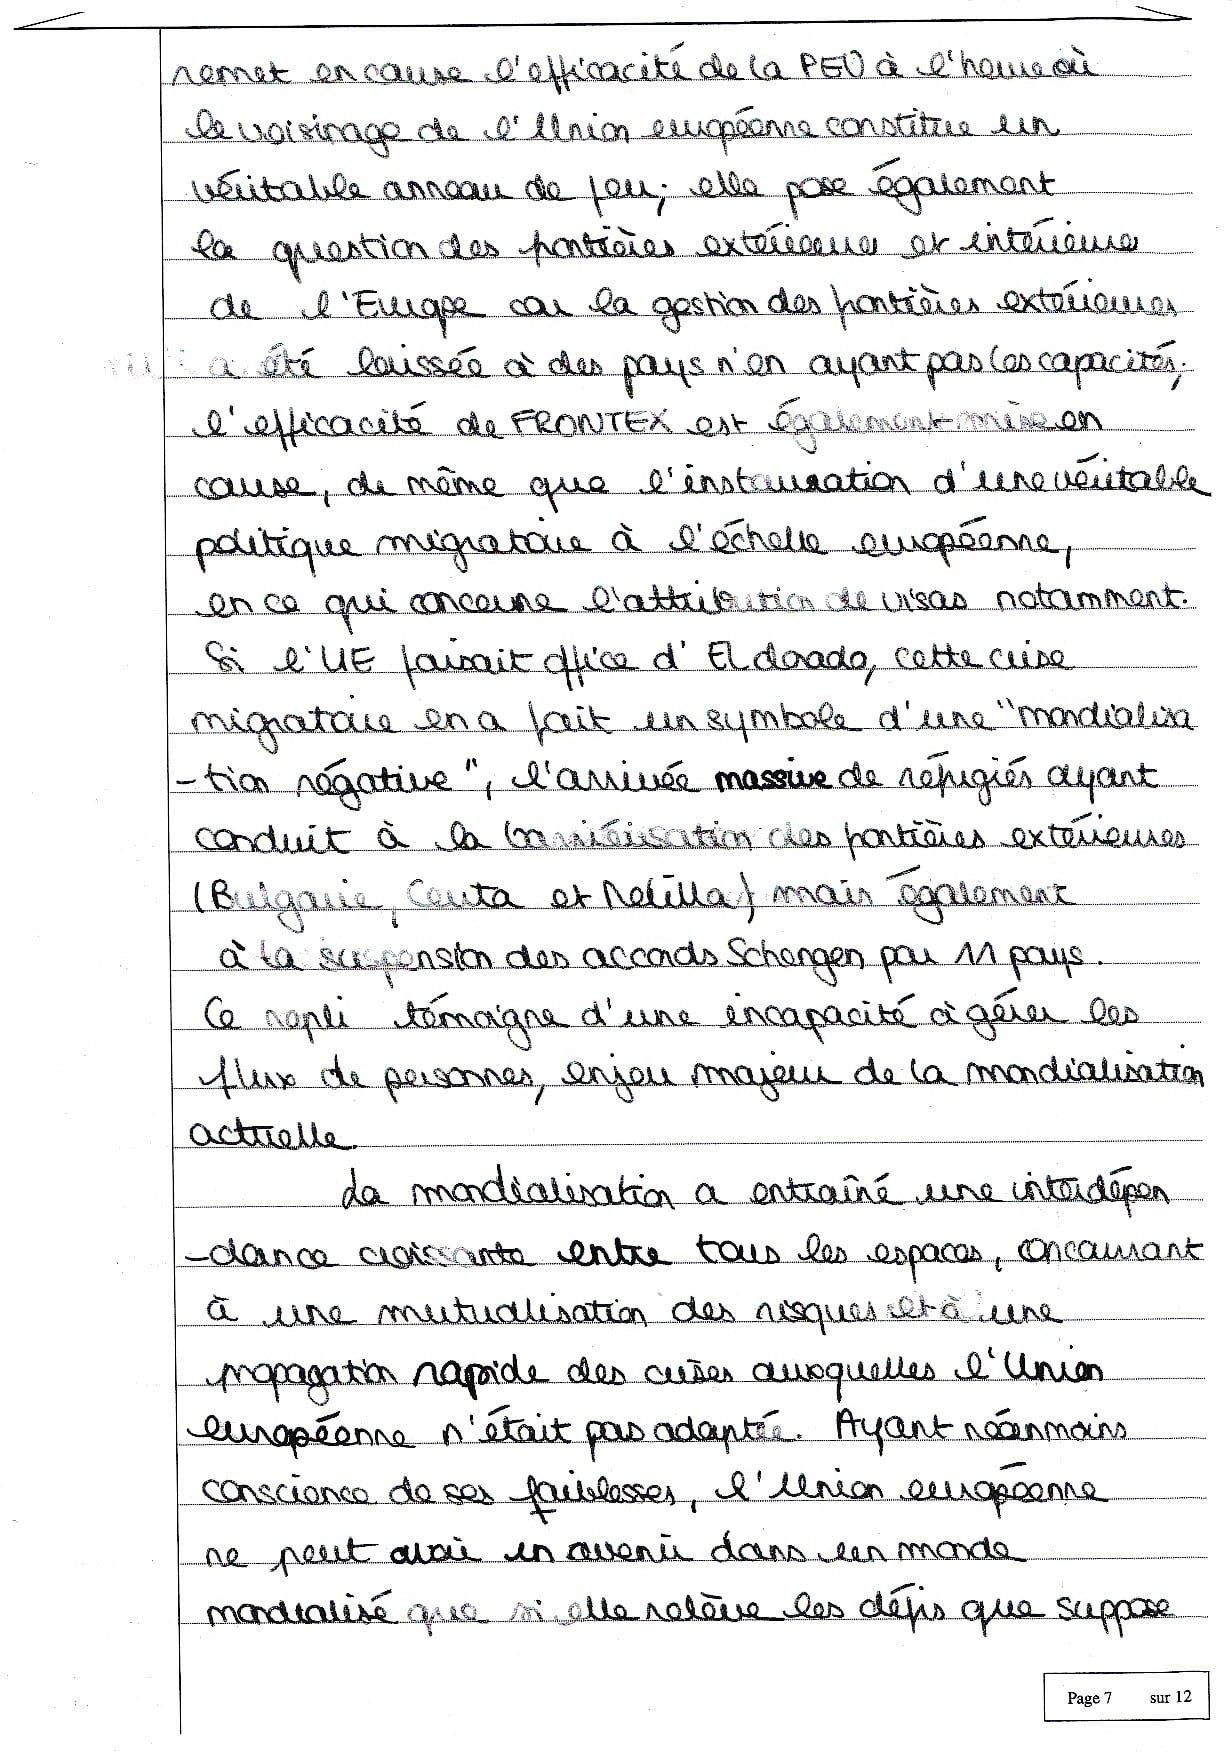 remet en cause l'efficacité de la PEV à l'heure où
le voisinage de l'Union européenne constitue un
véritable anneau de feu; elle pose également
la question des frontières extérieures et intérieures
de l'Europe car la gestion des frontières extérieures
a été laissée à des pays n'en ayant pas les capacités;
l'efficacité de FRONTEX est également mise en
cause, de même que l'instauration d'une véritable
politique migratoire à l'échelle européenne,
en ce qui concerne l'attribution de visas notamment.
Si l'UE faisait office d'El dorado, cette crise
migratoire en a fait un symbole d'une "mondialisa
-tion négative", l'arrivée massive de réfugiés ayant
conduit à la barriérisation des frontières extérieures
(Bulgarie, Ceuta et Melilla) mais également
à la suspension des accords Schengen par 11 pays.
Ce repli témoigne d'une incapacité à gérer les
flux de personnes, enjeu majeur de la mondialisation
actuelle.
La mondialisation a entraîné une interdépen
-dance croissante entre tous les espaces, concourant
à une mutualisation des risques et à une
propagation rapide des crises auxquelles l'Union
européenne n'était pas adaptée. Ayant néanmoins
conscience de ses faiblesses, l'Union européenne
ne peut avoir un avenir dans un monde
mondialisé que si elle relève les défis que suppose
Page 7 sur 12